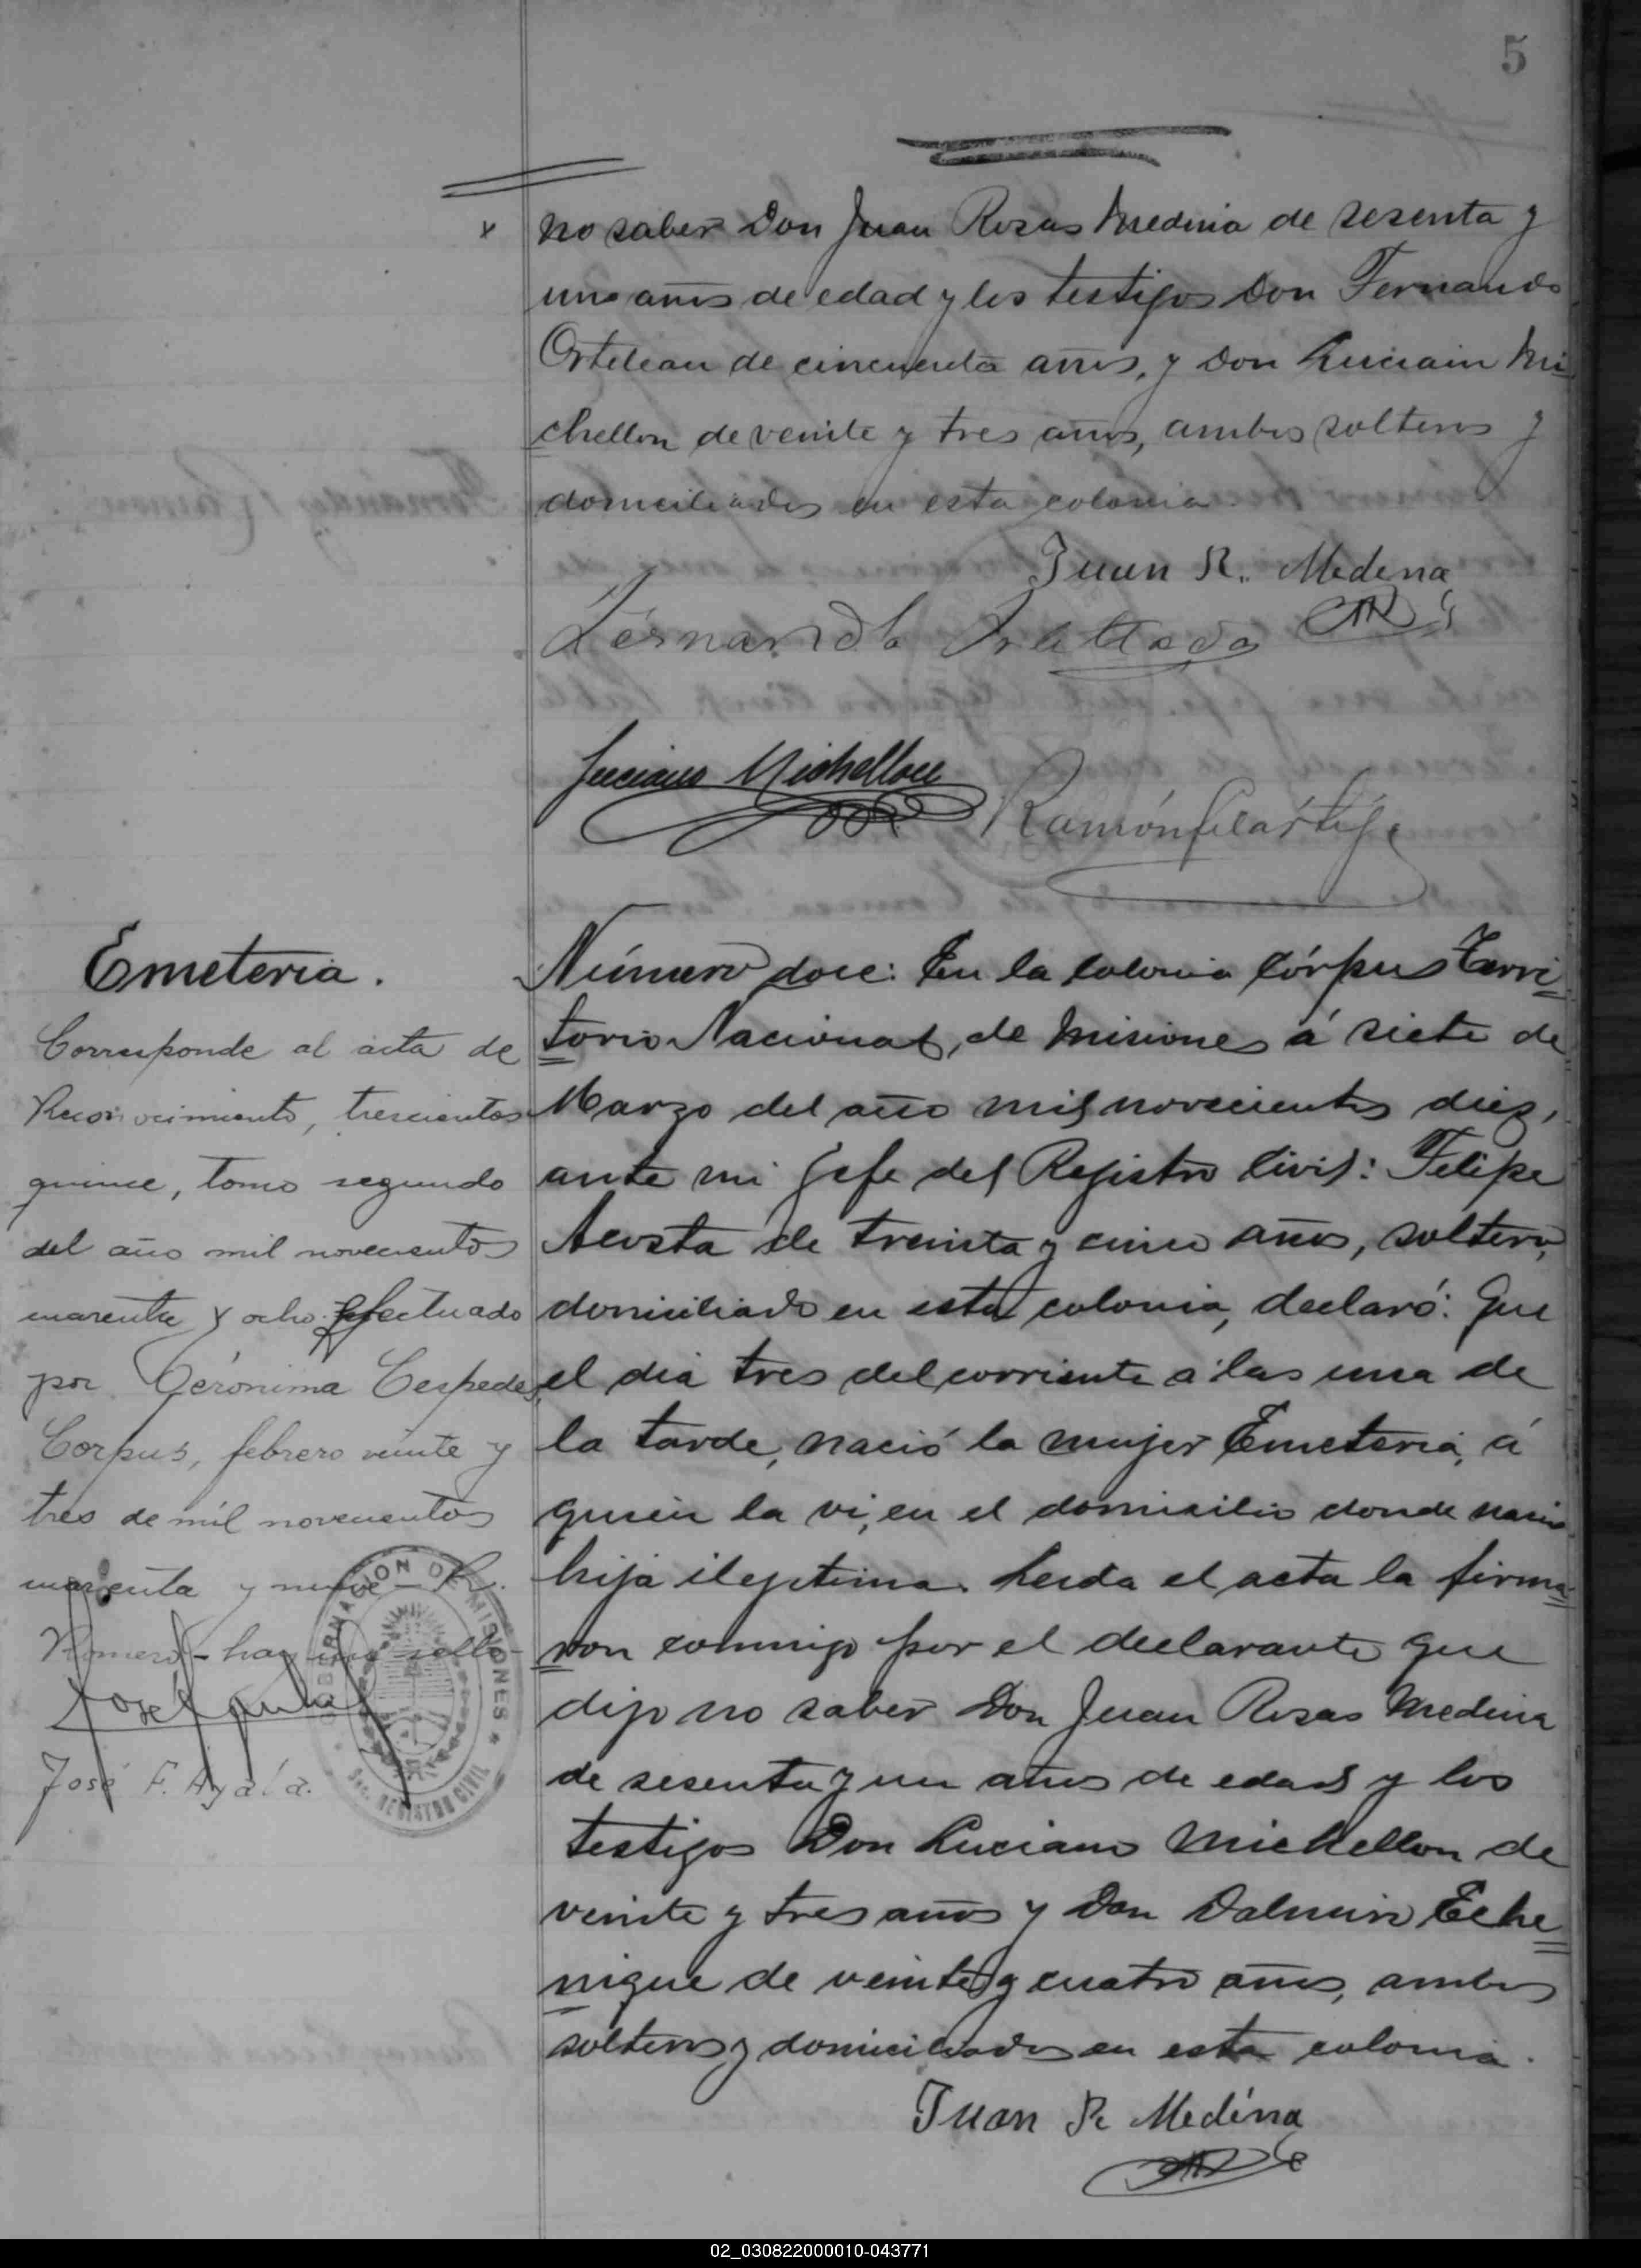 5
x no saber Don Juan Rosas Medina de sesenta y
uno años de edad y los testigos Don Fernando
de cincuenta años, y Don Luciain Mi
chellon de veinte y tres años, ambos solteros y
domiciliados en esta colonia
Juan R. Medena
Fernando
Luciano Michellon
Ramón
Emeteria.
Corresponde al acta de
Reconocimiento, trescientos
quince, tomo segundo
del año mil novecientos
cuarenta y ocho. Efectuado
por Gerónima Cespedes,
Corpus, febrero veinte y
tres de mil novecientos
cuarenta y nueve - R.
Romero - hay un sello -
José F. Ayala.
GOBERNACION DE MISIONES
Sec. REGISTRO CIVIL
Número doce: En la colonia Córpus Terri
torio Nacional, de Misiones á siete de
Marzo del año mil novecientos diez,
ante mi Jefe del Registro Civil: Felipe
Acosta de treinta y cinco años, soltero,
domiciliado en esta colonia, declaró: Que
el dia tres del corriente a las una de
la tarde, nació la mujer Emeteria, á
quien la vi, en el domicilio donde nacio
hija ilegitima. Leida el acta la firma
ron conmigo por el declarante que
dijo no saber Don Juan Rosas Medina
de sesenta y un años de edad y los
testigos Don Luciano Michellon de
veinte y tres años y Don Dalmiro Eche
nique de veinte y cuatro años, ambos
solteros y domiciliados en esta colonia.
Juan R. Medina
02_030822000010-043771